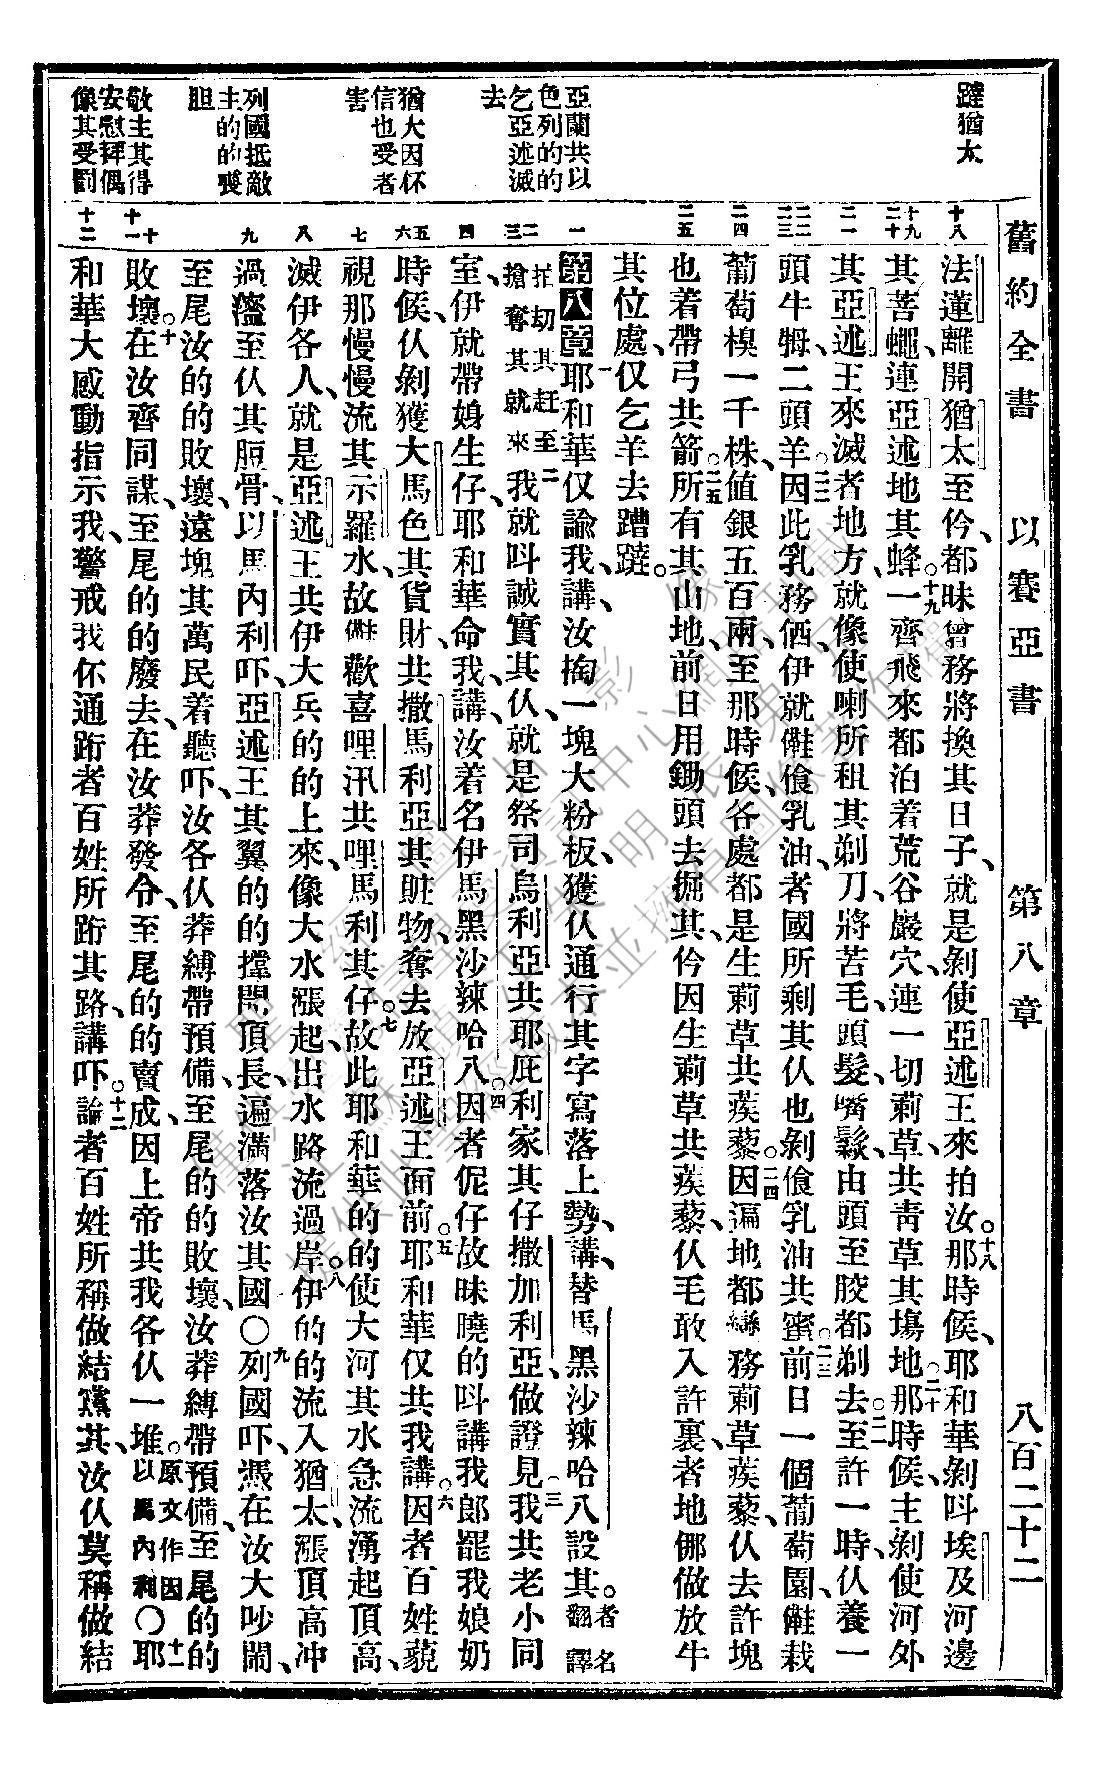 舊約全書 以賽亞書 第八章 八百二十二
蹧猶太
亞蘭共以
色列的的
乞亞述滅
去
猶大因怀
信也受者
害
列國抵敵
主的的喪
胆
敬主其得
安慰拜偶
像其受罰
十八
十九
二十
二一
二二
二三
二四
二五
一
二
三
四
五
六
七
八
九
十
十一
十二
法蓮離開猶太至伱、都昧曾務將換其日子、就是剝使亞述王來拍汝。十八那時候、耶和華剝呌埃及河邊
其菩蠅、連亞述地其蜂。十九一齊飛來都泊着荒谷巖穴、連一切莿草共靑草其塲地。二十那時候、主剝使河外
其亞述王來滅者地方、就像使喇所租其剃刀、將苦毛、頭髮、嘴鬏、由頭至骹都剃去。二一至許一時、仅養一
頭牛𤘅、二頭羊。二二因此乳務俩、伊就會飡乳油、者國所剩其仅也剝飡乳油共蜜。二三前日一個葡萄園、會栽
葡萄模一千株、値銀五百兩、至那時候、各處都是生莿草共蒺藜。二四因遍地都務莿草蒺藜、仅去許塊
也着帶弓共箭。二五所有其山地、前日用鋤頭去掘其、伱因生莿草共蒺藜、仅毛敢入許裏、者地倻做放牛
其位處、仅乞羊去蹧蹧。
第八章一耶和華仅諭我、講、汝掏一塊大粉板、獲仅通行其字寫落上勢、講、替馬黑沙辣哈八設其。者名翻譯
搶奪其就來 拦刧其赶至二我就呌誠實其仅、就是祭司烏利亞共耶庇利家其仔撒加利亞、做證見。三我共老小同
室、伊就帶娚生仔、耶和華命我、講、汝着名伊馬黑沙辣哈八。四因者伲仔故昧曉的呌講我郎罷我娘奶
時候、仅剝獲大馬色其貨財、共撒馬利亞其賍物、奪去放亞述王面前。五耶和華仅共我講。六因者百姓藐
視那慢慢流其示羅水、故會歡喜哩汛共哩馬利其仔。七故此耶和華的的使大河其水急流湧起頂高、
滅伊各人、就是亞述王共伊大兵的的上來、像大水漲起、出水路流過岸。八伊的的流入猶太、漲頂高冲
過濫至仅其脰骨、以馬內利吓、亞述王其翼的的擋闊頂長、遍滿落汝其國。〇九列國吓、憑在汝大吵鬧、
至尾汝的的敗壞、遠塊其萬民着聽吓、汝各仅莽縛帶預備、至尾的的敗壞、汝莽縛帶預備、至尾的的
敗壞。十在汝齊同謀、至尾的的廢去、在汝莽發令、至尾的的賣成、因上帝共我各仅一堆。原文作因以馬內利〇十一耶
和華大感動指示我、警戒我伓通跨者百姓所跨其路、講吓。十二論者百姓所稱做結黨其、汝仅莫稱做結